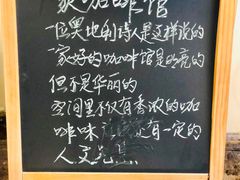 家咖啡馆
一位奥地利诗人是这样说的
一家好的咖啡馆是明亮的
但不是华丽的
空间里不仅有香浓的咖
啡味 有一定的
人文